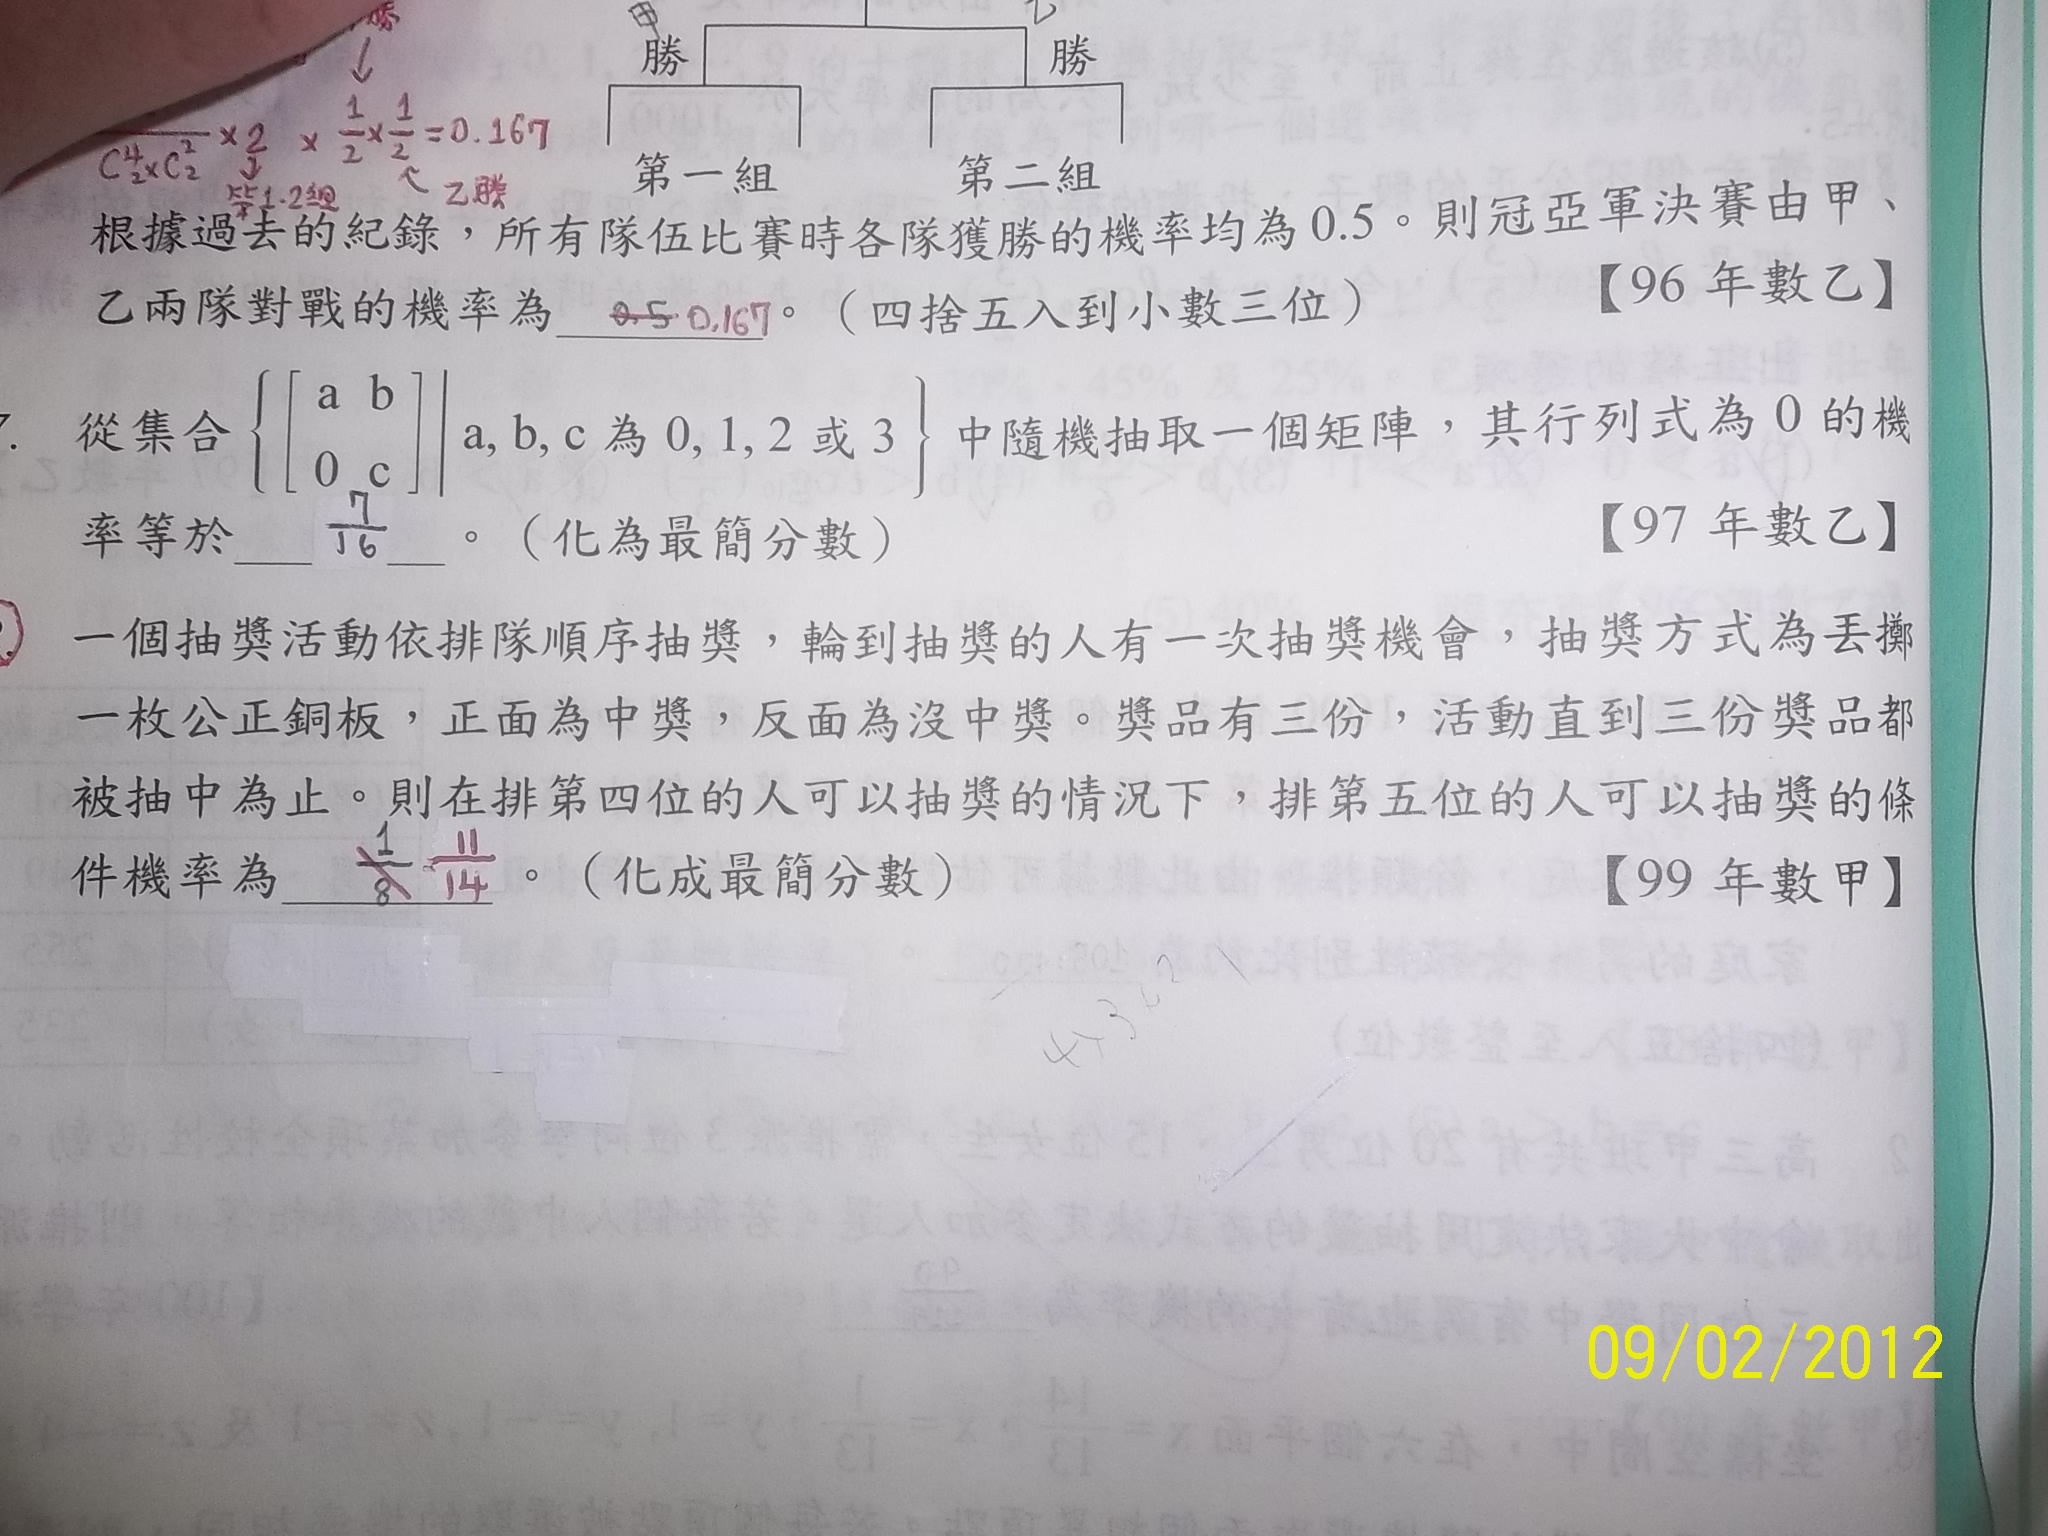 甲 乙
勝 勝
第一組 第二組
C⁴₂×C²₂ ×2 × 1/2 × 1/2 = 0.167
乙勝
根據過去的紀錄，所有隊伍比賽時各隊獲勝的機率均為 0.5。則冠亞軍決賽由甲、
乙兩隊對戰的機率為 0.5 0.167。（四捨五入到小數三位） 【96 年數乙】
7. 從集合 { [ a b 0 c ] | a, b, c 為 0, 1, 2 或 3 } 中隨機抽取一個矩陣，其行列式為 0 的機
率等於 7/16 。（化為最簡分數） 【97 年數乙】
一個抽獎活動依排隊順序抽獎，輪到抽獎的人有一次抽獎機會，抽獎方式為丟擲
一枚公正銅板，正面為中獎，反面為沒中獎。獎品有三份，活動直到三份獎品都
被抽中為止。則在排第四位的人可以抽獎的情況下，排第五位的人可以抽獎的條
件機率為 1/8 11/14 。（化成最簡分數） 【99 年數甲】
09/02/2012